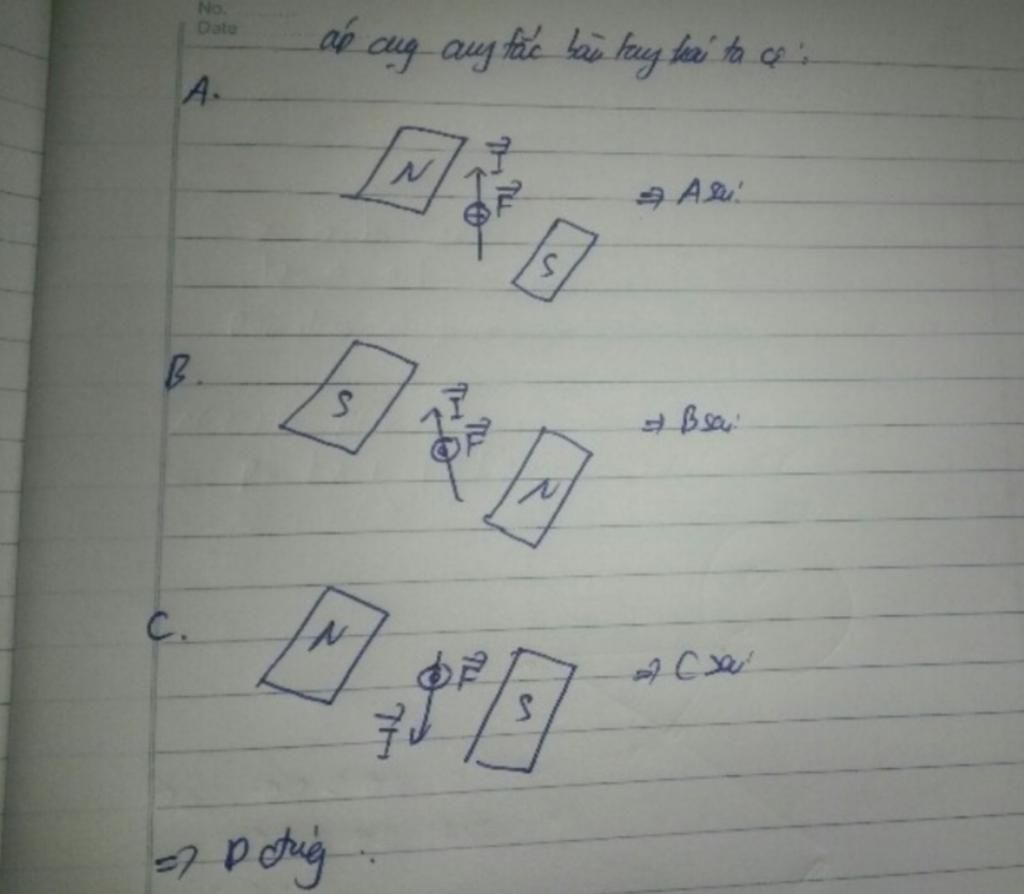 No.
Date
áp dụng quy tắc bàn tay trái ta có:
A.
N
I
F
S
=> A sai
B.
S
I
F
N
=> B sai
C.
N
F
I
S
=> C sai
=> D đúng.